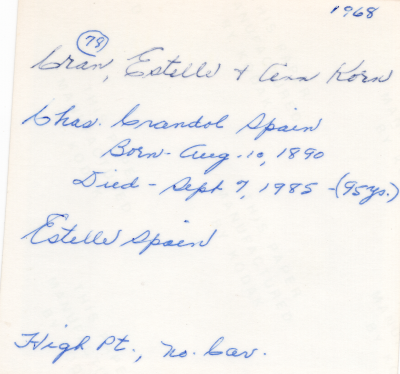 1968
(79)
Cran, Estelle & Ann Korn
Chas. Crandol Spain
Born - Aug. 10, 1890
Died - Sept 7, 1985 - (95 ys.)
Estelle Spain
High Pt., No. Car.